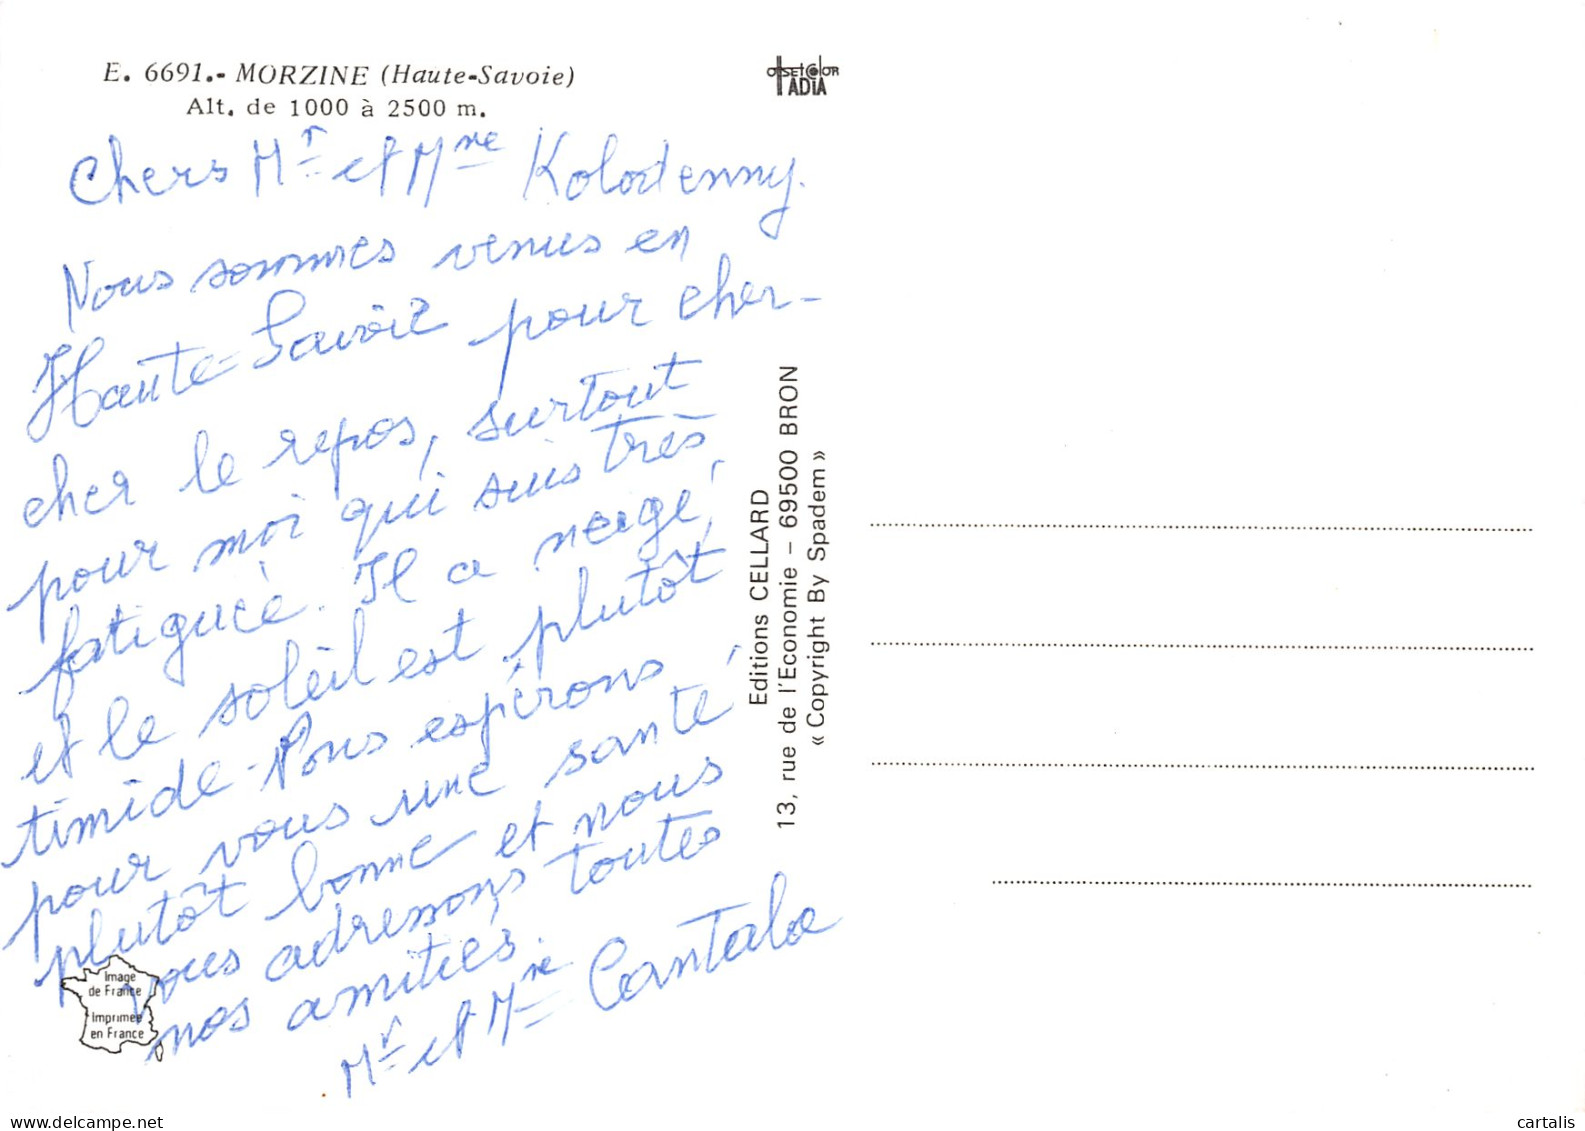 E. 6691.- MORZINE (Haute-Savoie)
Alt. de 1000 à 2500 m.
OFFSET COLOR
ADIA
Chers Mr et Mme Kolodenny.
Nous sommes venus en
Haute-Savoie pour cher-
cher le repos, surtout
pour moi qui suis très
fatiguée. Il a neigé,
et le soleil est plutôt
timide - Nous espérons
pour vous une santé
plutôt bonne et nous
vous adressons toutes
nos amitiés.
Mr et Mme Cantaba
Editions CELLARD
13, rue de l'Economie - 69500 BRON
« Copyright By Spadem »
Image
de France
Imprimée
en France
delcampe.net
cartalis